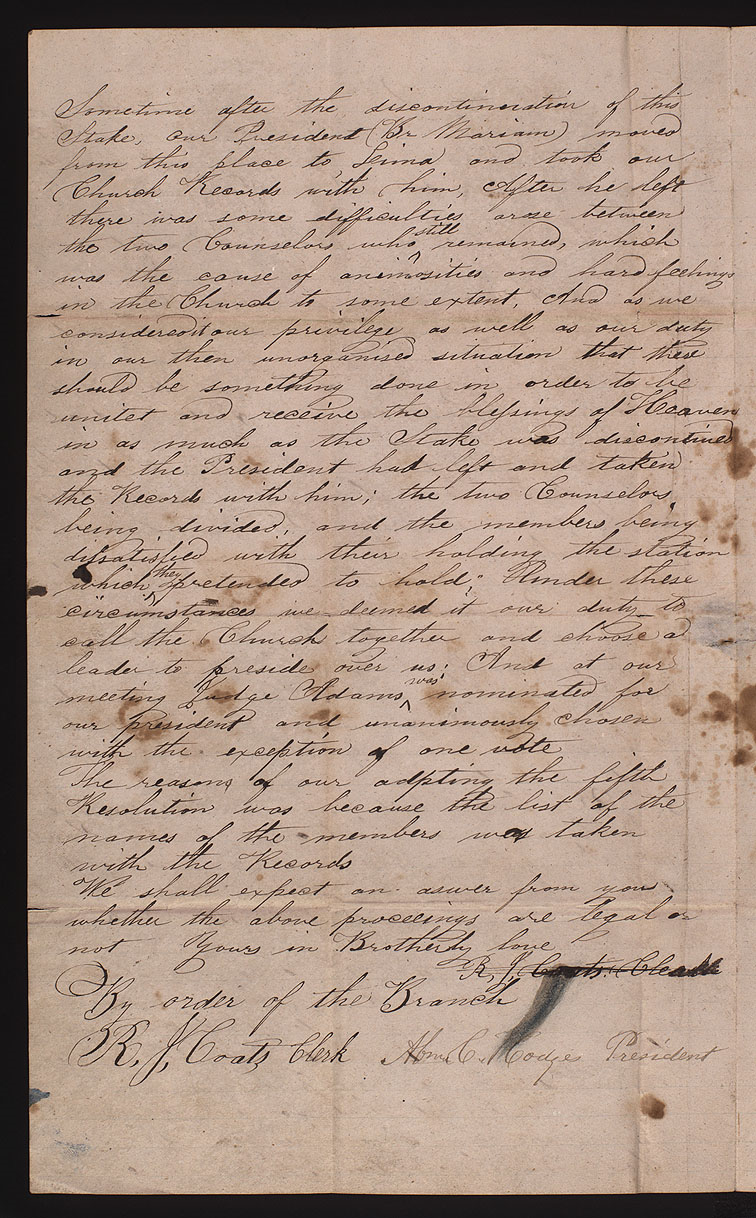 Sometime after the discontinuation of this
Stake, our President (Br Mariam) moved
from this place to Leima and took our
Church Records with him, After he left
there was some difficulties arose between
the two Counselors who still remained, which
was the cause of animosities and hard feelings
in the Church to some extent, And as we
considered it our privilege as well as our duty
in our then unorganised situation that there
should be something done in order to be
unitet and receive the blessings of Heaven
in as much as the Stake was discontinued
and the President had left and taken
the Record with him; the two Counselors
being divided; and the members being
dissatisfied with their holding the station
which they pretended to hold; Under these
circumstances we deemed it our duty to
call the Church together and choose a
leader to preside over us; And at our
meeting Judge Adams was nominated for
our president and unanimously chosen
with the exception of one vote
The reasons of our adpting the fifth
Resolution was because the list of the
names of the members was taken
with the Records
We shall expect an aswer from you
whether the above proceeings are legal or
not Yours in Brotherly love
R, J, Coats. Cleark
By order of the Branch
R, J, Coats Clerk Abm C. Hodge President